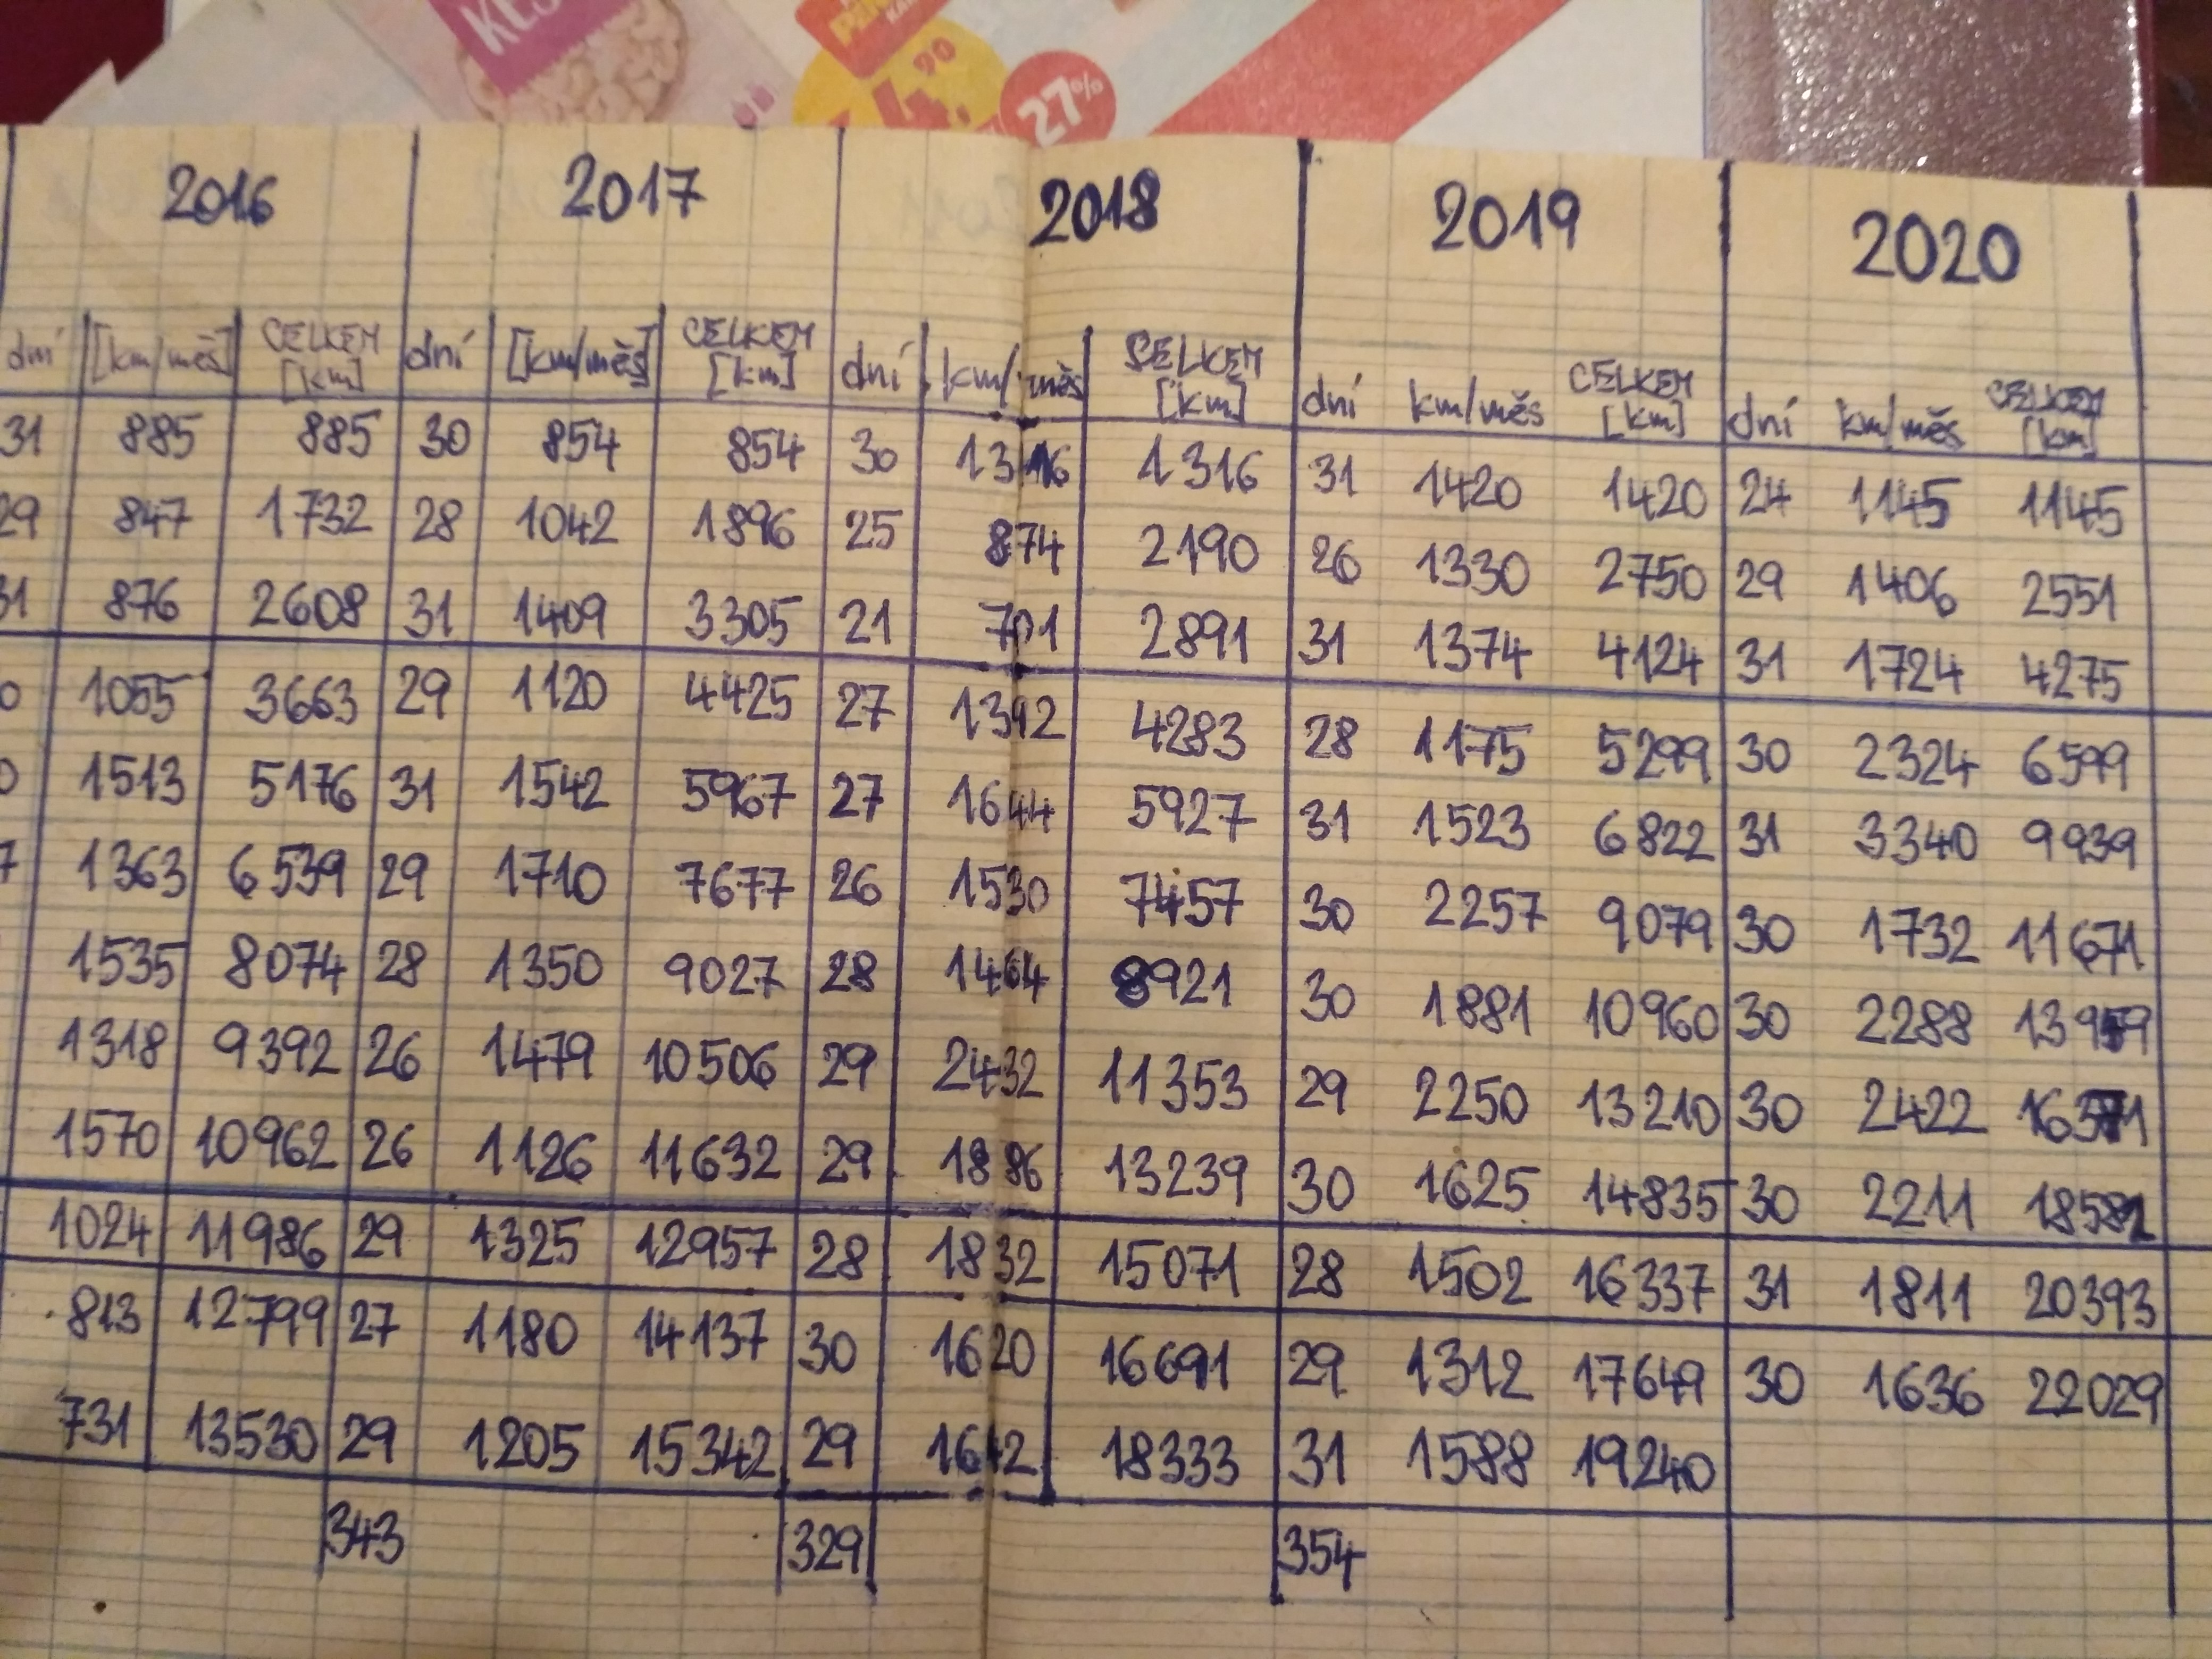 KES
PEN
KA
4.90
27%
2016 2017 2018 2019 2020
dní [km/měs] CELKEM [km] dní [km/měs] CELKEM [km] dní km/měs CELKEM [km] dní km/měs CELKEM [km] dní km/měs CELKEM [km]
31 885 885 30 854 854 30 1316 1316 31 1420 1420 24 1145 1145
29 847 1732 28 1042 1896 25 874 2190 26 1330 2750 29 1406 2551
31 876 2608 31 1409 3305 21 701 2891 31 1374 4124 31 1724 4275
0 1055 3663 29 1120 4425 27 1392 4283 28 1175 5299 30 2324 6599
0 1513 5176 31 1542 5967 27 1644 5927 31 1523 6822 31 3340 9939
7 1363 6539 29 1710 7677 26 1530 7457 30 2257 9079 30 1732 11671
1535 8074 28 1350 9027 28 1464 8921 30 1881 10960 30 2288 13959
1318 9392 26 1479 10506 29 2432 11353 29 2250 13210 30 2422 16371
1570 10962 26 1126 11632 29 1886 13239 30 1625 14835 30 2211 18582
1024 11986 29 1325 12957 28 1832 15071 28 1502 16337 31 1811 20393
813 12799 27 1180 14137 30 1620 16691 29 1312 17649 30 1636 22029
731 13530 29 1205 15342 29 1642 18333 31 1588 19240
343 329 354